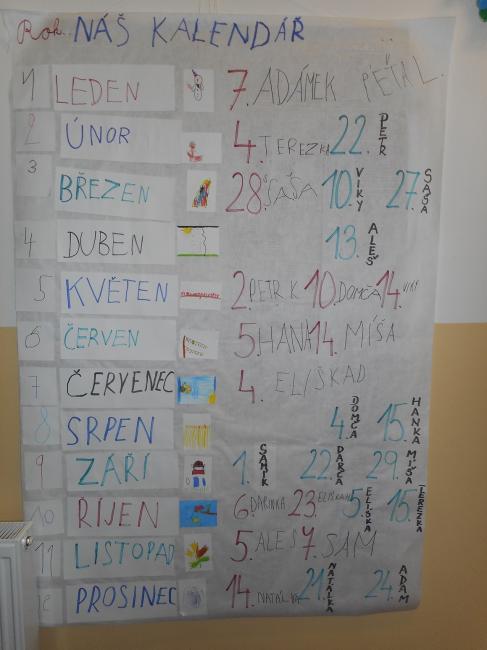 Rok.. NÁŠ KALENDÁŘ
1 LEDEN 7. ADÁMEK PÉŤA L.
2 ÚNOR 4. TEREZKA 22. PETR
3 BŘEZEN 28. SAŠA 10. VIKY 27. SAŠA
4 DUBEN 13. ALEŠ
5 KVĚTEN 2. PETR K 10. DOMČA 14. VIKY
6 ČERVEN 5. HANK 14. MÍŠA
7 ČERVENEC 4. ELIŠKA D
8 SRPEN 4. DOMČA 15. HANKA
9 ZÁŘÍ 1. SAMÍK 22. DARČA 29. MÍŠA
10 ŘÍJEN 6. DARINKA 23. ELIŠKA H 5. ELIŠKA 15. TEREZKA
11 LISTOPAD 5. ALEŠ 7. SAM
12 PROSINEC 14. NATÁLKA 21. NATÁLKA 24. ADAM